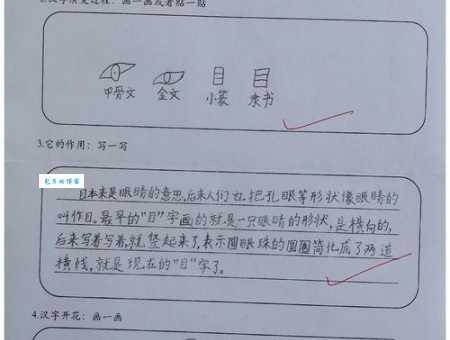 2.汉字演变过程：画一画或者贴一贴
甲骨文 金文 小篆 隶书
3.它的作用：写一写
目本来是眼睛的意思,后来人们也把孔眼等形状像眼睛的
叫作目。最早的"目"字画的就是一只眼睛的形状,是横向的,
后来写着写着,就竖起来了,表示圈眼珠的圆圈简化成了两道
横线,就是现在的"目"字了。
4.汉字开花：画一画